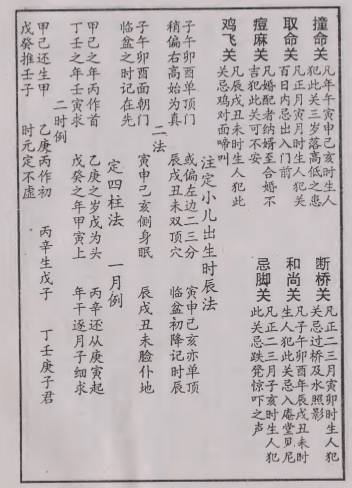 撞命关
凡年午寅申巳亥时生人
犯此关三岁落高低之患
断桥关
凡正二三月寅卯时生人犯
关忌过桥及水照影
取命关
凡正月寅月时生人犯关
百日内忌出入门前
和尚关
凡子午卯酉年辰戌丑未时
生人犯此关忌入庵堂见尼
痘麻关
凡婚配者纳婿至合婚不
吉犯此关可不安
忌脚关
凡正二三月子亥时生人犯
此关忌跌凳惊吓之声
鸡飞关
凡辰戌丑未时生人犯此
关忌鸡对面啼叫
注定小儿出生时辰法
子午卯酉单顶门 或偏左边二三分 寅申巳亥亦单顶
稍偏右高始为真 辰戌丑未双顶穴 临盆初降记时辰
二法
子午卯酉面朝门 寅申巳亥侧身眠 辰戌丑未脸仆地
临盆之时记在先
定四柱法 一月例
甲己之年丙作首 乙庚之岁戊为头 丙辛还从庚寅起
丁壬之年壬寅求 戊癸之年甲寅上 年干逐月子细求
二时例
甲己还生甲 乙庚丙作初 丙辛生戊子 丁壬庚子君
戊癸推壬子 时元定不虚